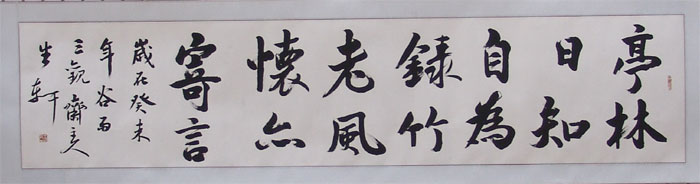 亭林
日知
自為
錄竹
老風
懷亦
寄言
歲在癸未
年谷雨
三觀齋主人
生軒